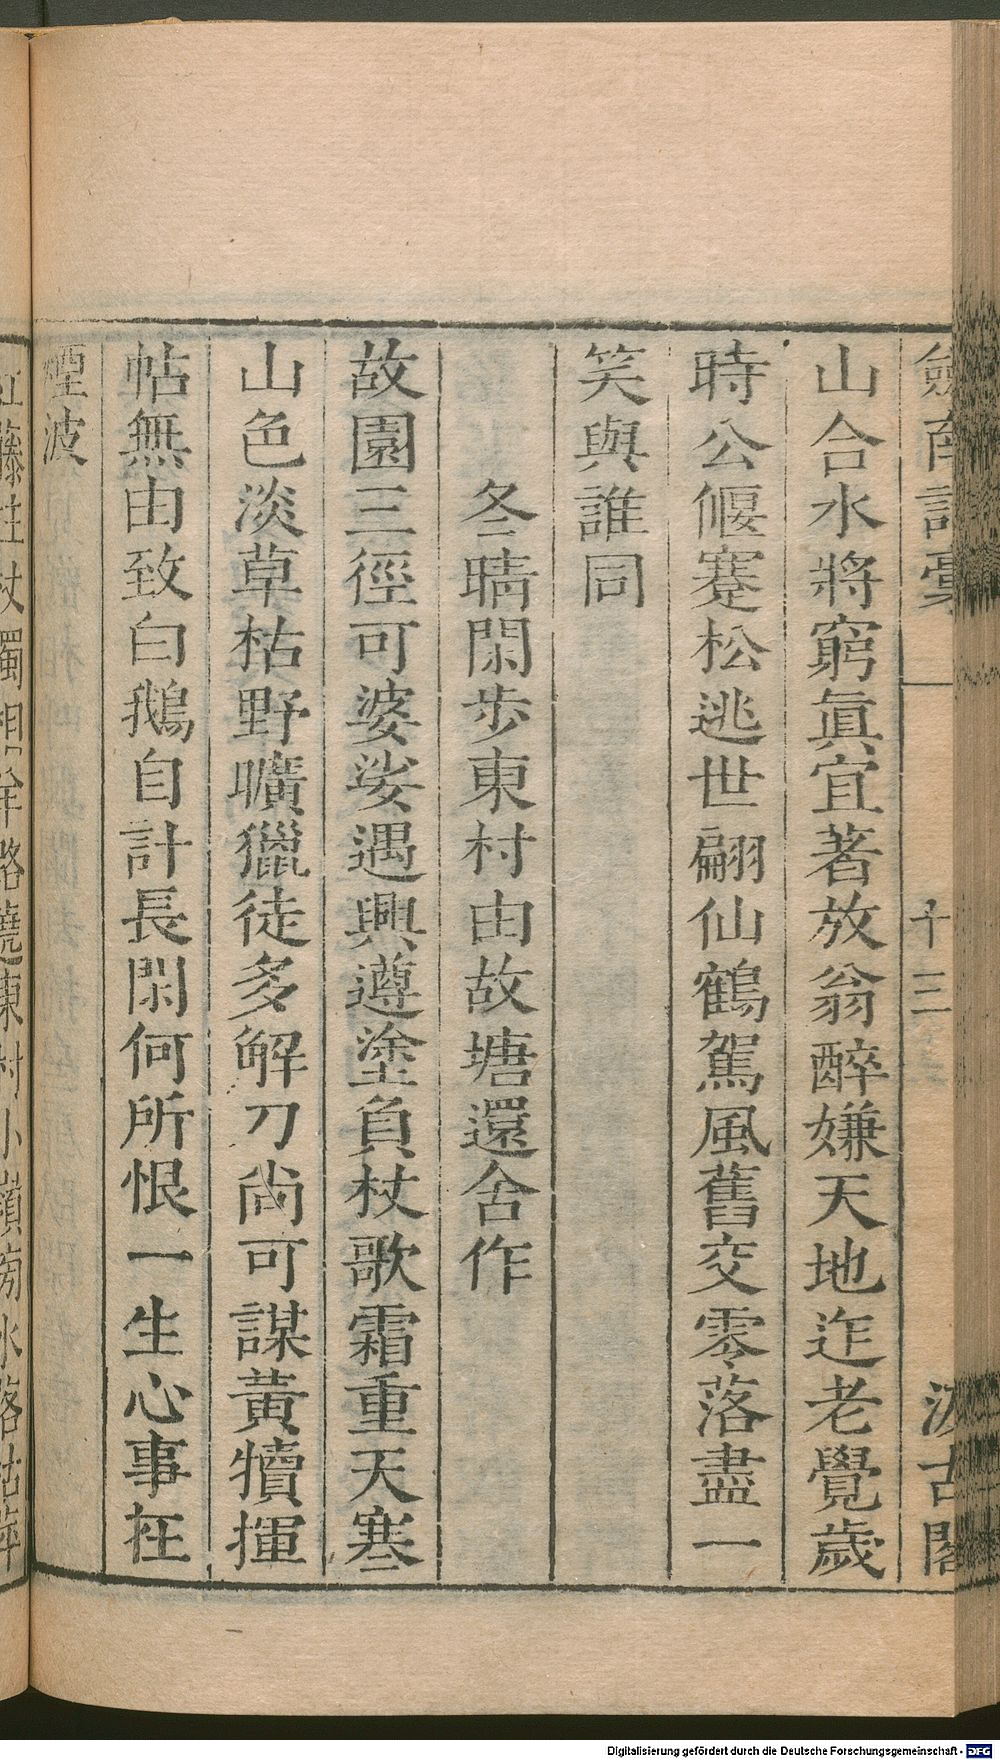 劍南詩稾
十三
汲古閣
山合水將窮眞宜著放翁醉嫌天地迮老覺歲
時公偃蹇松逃世翩仙鶴駕風舊交零落盡一
笑與誰同
冬晴閑步東村由故塘還舍作
故園三徑可婆娑遇興遵塗負杖歌霜重天寒
山色淡草枯野曠獵徒多解刀尚可謀黃犢揮
帖無由致白鵝自計長閑何所恨一生心事在
煙波
藤拄杖獨相東村小嶺
Digitalisierung gefördert durch die Deutsche Forschungsgemeinschaft - DFG